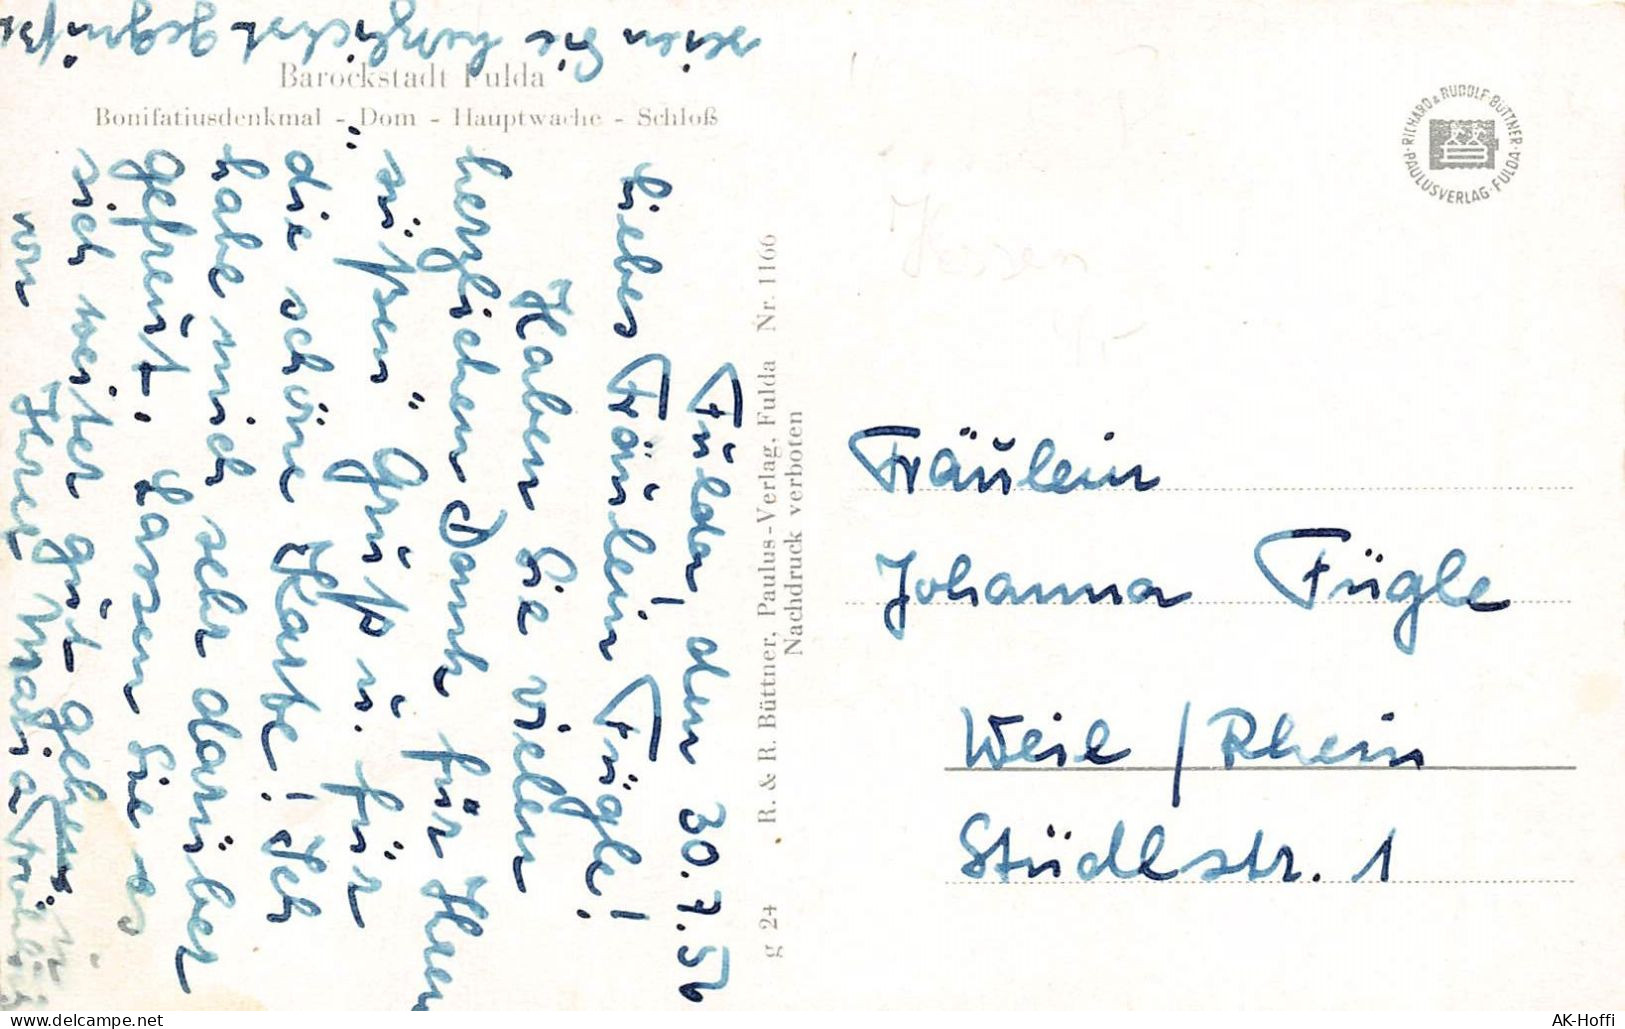 Barockstadt Fulda
Bonifatiusdenkmal - Dom - Hauptwache - Schloß
Fulda, den 30.7.56
Liebes Fräulein Fügle!
Haben Sie vielen
herzlichen Dank für Ihren
"süßen" Gruß u. für
die schöne Karte! Ich
habe mich sehr darüber
gefreut. Lassen Sie es
sich weiter gut gehen u.
seien Sie herzlichst gegrüßt
von Ihrer Maria
g 24 R. & R. Büttner, Paulus-Verlag, Fulda Nr. 1166
Nachdruck verboten
RICHARD & RUDOLF BÜTTNER · PAULUSVERLAG · FULDA ·
Hessen
Fräulein
Johanna Fügle
Weil / Rhein
Stüdlestr. 1
www.delcampe.net
AK-Hoffi